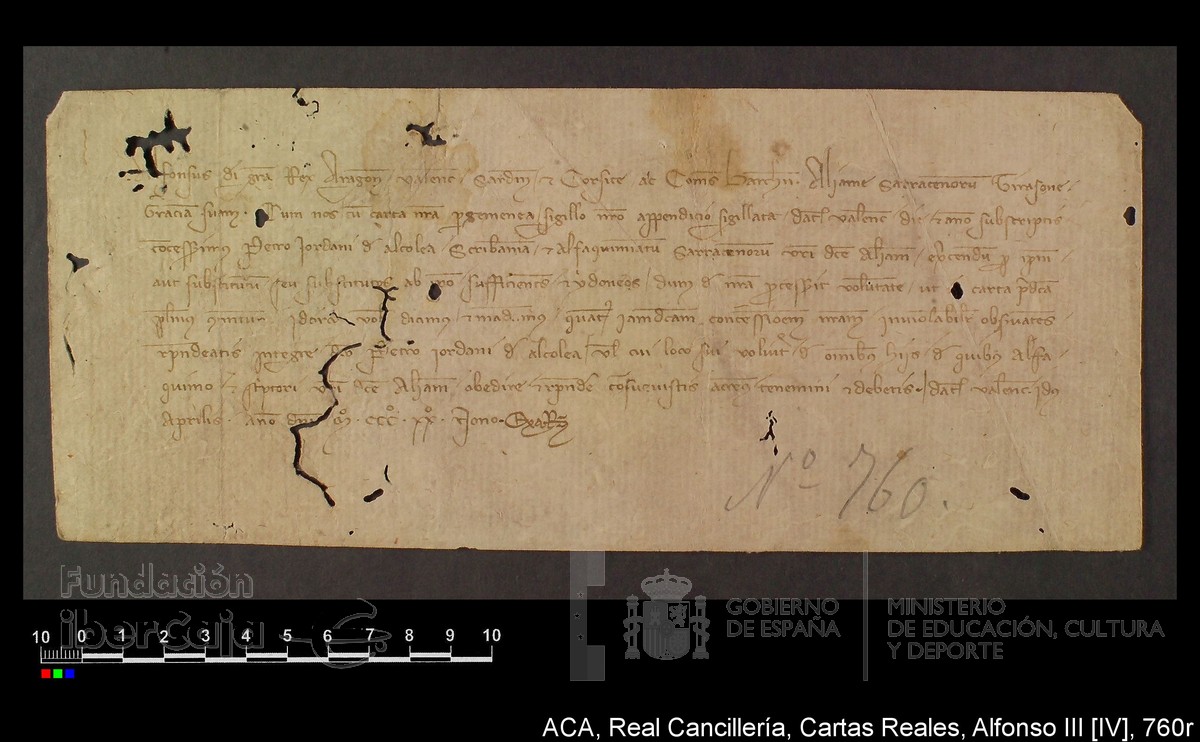 fonsus di gra Rex Aragon Valenc Sardin et Corsice ac Comes Barchn. Aliame Sarracenorum Tirasone.
Graciam suam. Cum nos cum carta nra pgamenea sigillo nro appendicio sigillata dat Valenc die et anno subscriptis
concessimus Petro Jordani d alcolea Scribaniam et alfaquimiatum Sarracenorum dce Aliam exercendum p ipm
aut substitutum seu substitutos ab sufficientes et ydoneos dum d nra pcesserit voluntate ut carta pdca
plenius Idcirco vob dicimus et quat concessionem nram inviolabilr observantes
rpndeatis integre Petro Jordani d alcolea vl cui loco sui voluit d omnib hijs d quibus Alfa
quimo et sciptori dce Aliam obedire et rpndere consuevistis tenemini et debetis. dat Valenc Idus
Aprilis. Anno dni Mº. CCCº. XXº. Nono.
Nº 760.
Fundación
ibercaja
10 0 1 2 3 4 5 6 7 8 9 10
GOBIERNO
DE ESPAÑA
MINISTERIO
DE EDUCACIÓN, CULTURA
Y DEPORTE
ACA, Real Cancillería, Cartas Reales, Alfonso III [IV], 760r